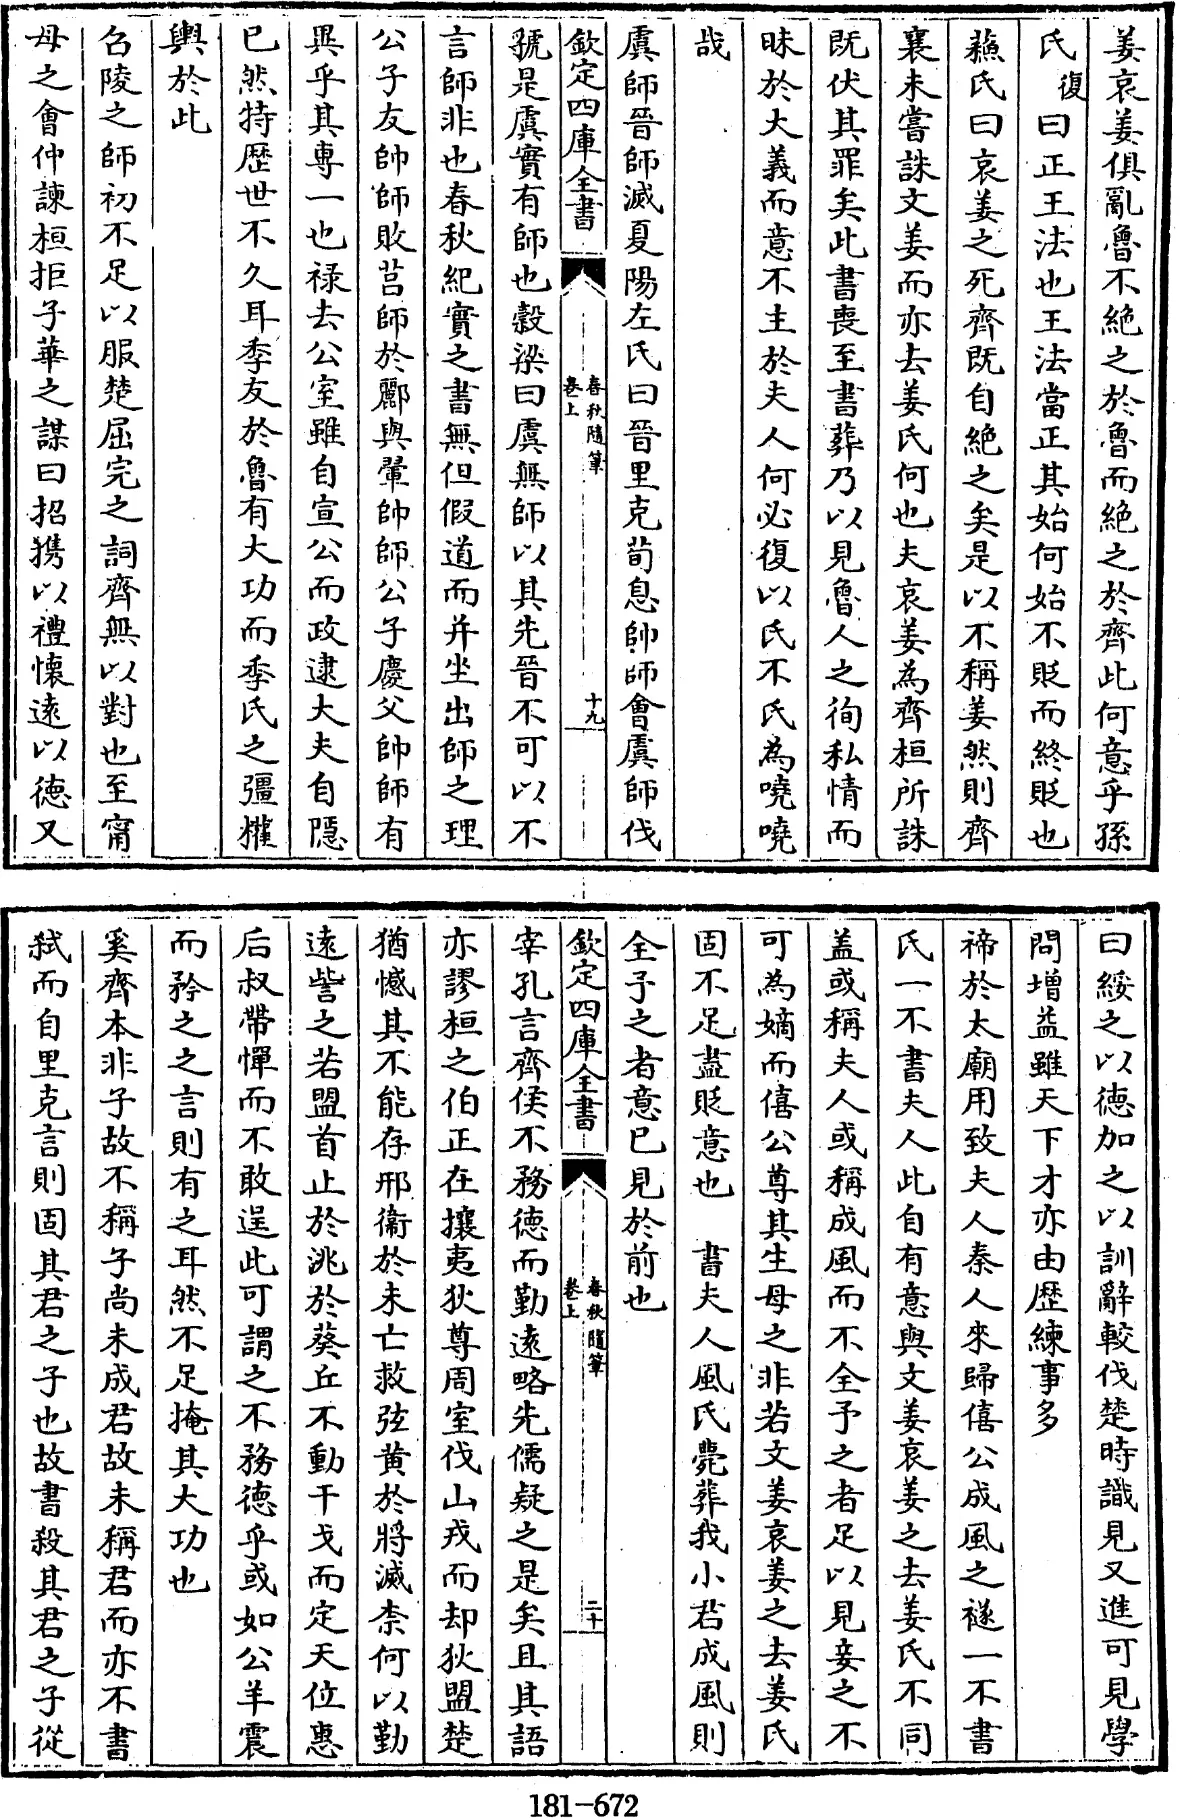 姜哀姜俱亂魯不絶之於魯而絶之於齊此何意乎孫
氏復曰正王法也王法當正其始何始不貶而終貶也
蘓氏曰哀姜之死齊既自絶之矣是以不稱姜然則齊
襄未嘗誅文姜而亦去姜氏何也夫哀姜為齊桓所誅
既伏其罪矣此書喪至書葬乃以見魯人之徇私情而
昧於大義而意不主於夫人何必復以氏不氏為嘵嘵
哉
虞師晉師滅夏陽左氏曰晉里克荀息帥師會虞師伐
欽定四庫全書
春秋隨筆
卷上
十九
虢是虞實有師也榖梁曰虞無師以其先晉不可以不
言師非也春秋紀實之書無但假道而并坐出師之理
公子友帥師敗莒師於酈與翬帥師公子慶父帥師有
異乎其專一也禄去公室雖自宣公而政逮大夫自隱
已然特歴世不久耳季友於魯有大功而季氏之彊權
輿於此
召陵之師初不足以服楚屈完之詞齊無以對也至甯
母之會仲諫桓拒子華之謀曰招携以禮懷遠以德又
曰綏之以德加之以訓辭較伐楚時識見又進可見學
問增益雖天下才亦由歴練事多
禘於太廟用致夫人秦人來歸僖公成風之襚一不書
氏一不書夫人此自有意與文姜哀姜之去姜氏不同
盖或稱夫人或稱成風而不全予之者足以見妾之不
可為嫡而僖公尊其生母之非若文姜哀姜之去姜氏
固不足盡貶意也　書夫人風氏薨葬我小君成風則
全予之者意已見於前也
欽定四庫全書
春秋隨筆
卷上
二十
宰孔言齊侯不務德而勤遠略先儒疑之是矣且其語
亦謬桓之伯正在攘夷狄尊周室伐山戎而却狄盟楚
猶憾其不能存邢衞於未亡救弦黄於將滅柰何以勤
遠訾之若盟首止於洮於葵丘不動干戈而定天位惠
后叔帶憚而不敢逞此可謂之不務德乎或如公羊震
而矜之之言則有之耳然不足掩其大功也
奚齊本非子故不稱子尚未成君故未稱君而亦不書
弑而自里克言則固其君之子也故書殺其君之子從
181-672